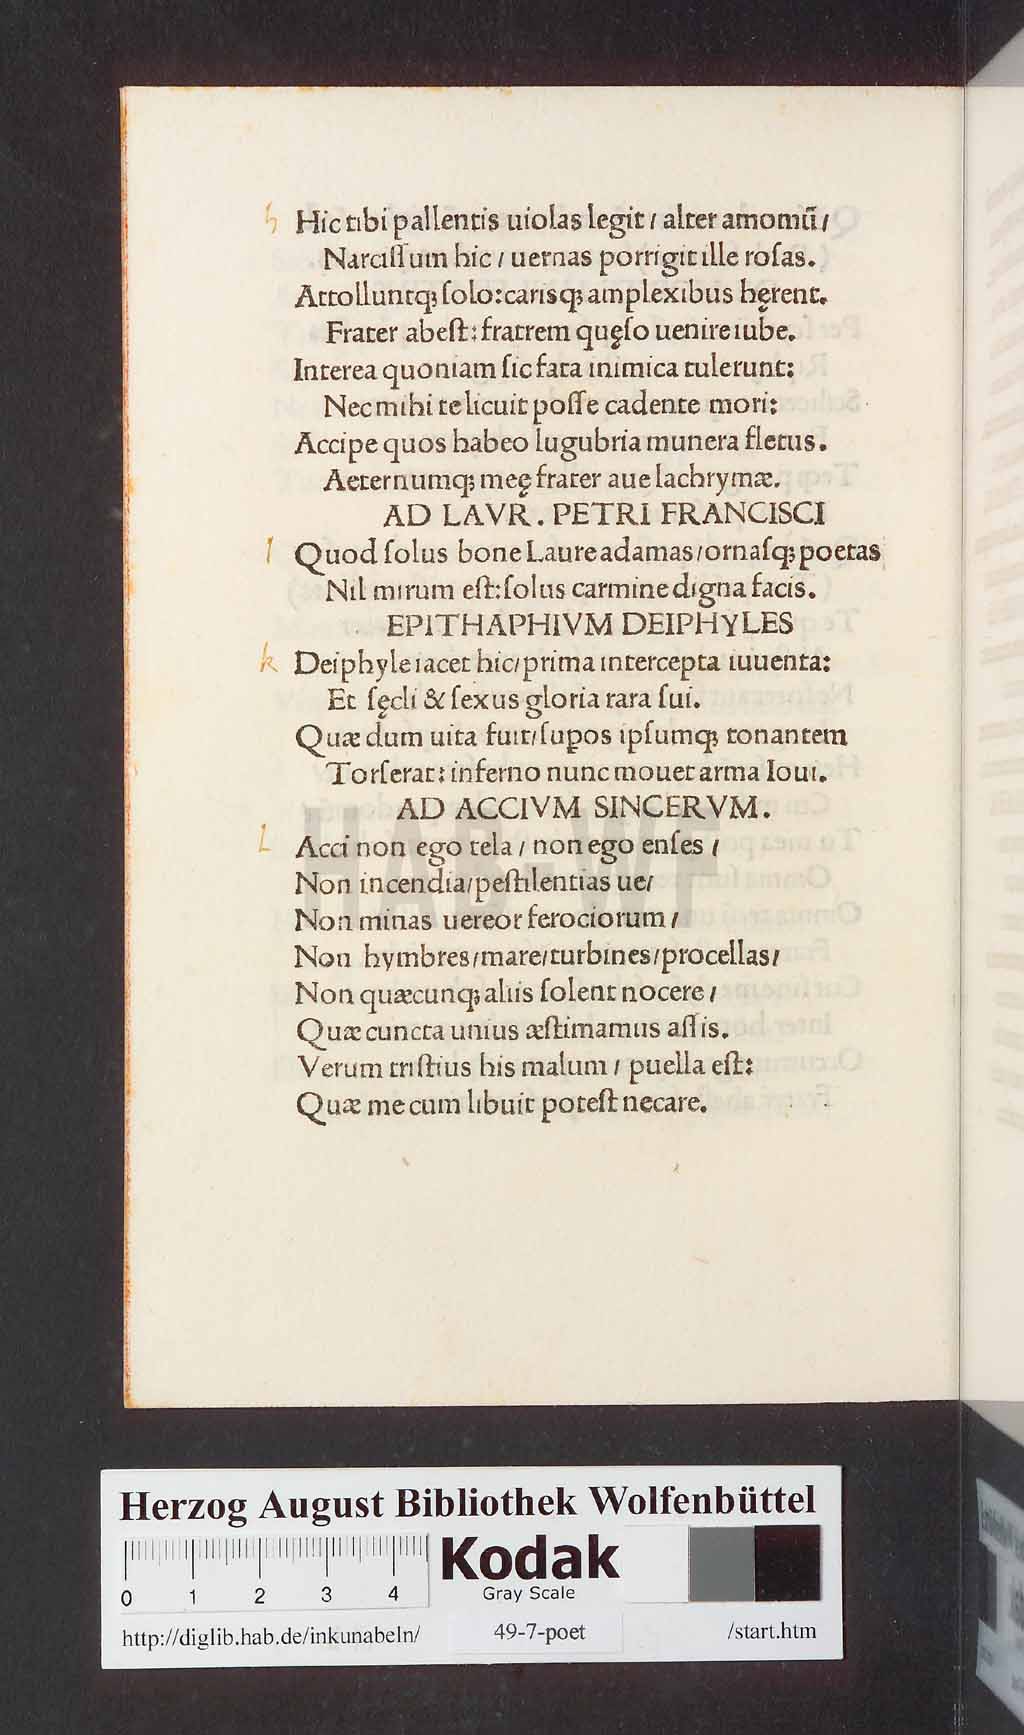 h Hic tibi pallentis uiolas legit / alter amomū /
Narciſſum hic / uernas porrigit ille roſas.
Attolluntqꝫ ſolo: carisqꝫ amplexibus hęrent.
Frater abeſt: fratrem quęſo uenire iube.
Interea quoniam ſic fata inimica tulerunt:
Nec mihi te licuit poſſe cadente mori:
Accipe quos habeo lugubria munera fletus.
Aeternumqꝫ meę frater aue lachrymæ.
AD LAVR. PETRI FRANCISCI
l Quod ſolus bone Laure adamas / ornaſqꝫ poetas
Nil mirum eſt: ſolus carmine digna facis.
EPITHAPHIVM DEIPHYLES
k Deiphyle iacet hic / prima intercepta iuuenta:
Et ſęcli & ſexus gloria rara ſui.
Quæ dum uita fuit / ſupos ipſumqꝫ tonantem
Torſerat: inferno nunc mouet arma Ioui.
AD ACCIVM SINCERVM.
L Acci non ego tela / non ego enſes /
Non incendia / peſtilentias ue /
Non minas uereor ferociorum /
Non hymbres / mare / turbines / procellas /
Non quæcunqꝫ aliis ſolent nocere /
Quæ cuncta unius æſtimamus aſſis.
Verum triſtius his malum / puella eſt:
Quæ me cum libuit poteſt necare.
HAB-WF
Herzog August Bibliothek Wolfenbüttel
0 1 2 3 4 Kodak
Gray Scale
http://diglib.hab.de/inkunabeln/ 49-7-poet /start.htm